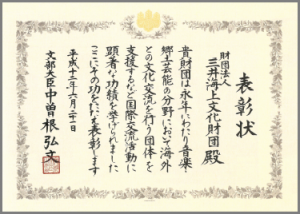 表彰状
財団法人
三井海上文化財団殿
貴財団は永年にわたり音楽
郷土芸能の分野において海外
との文化交流を行う団体を
支援するなど国際交流活動に
顕著な功績を挙げられました
ここにその功をたたえ表彰します
平成十二年六月二十二日
文部大臣中曽根弘文